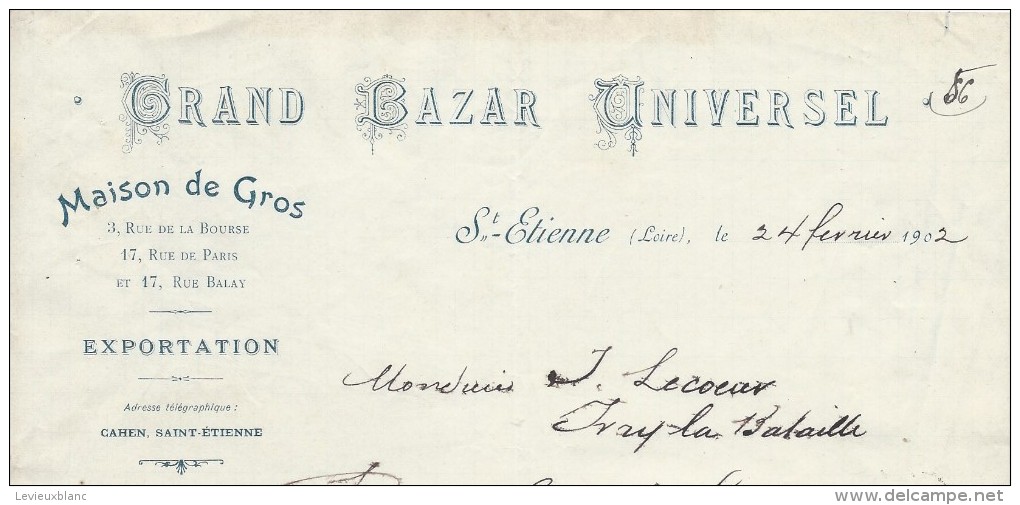 GRAND BAZAR UNIVERSEL
86
Maison de Gros
3, RUE DE LA BOURSE
17, RUE DE PARIS
ET 17, RUE BALAY
EXPORTATION
Adresse télégraphique :
CAHEN, SAINT-ÉTIENNE
St-Etienne (Loire), le 24 fevrier 1902
Monsieur J. Lecoeur
Ivry la Bataille
Levieuxblanc
www.delcampe.net